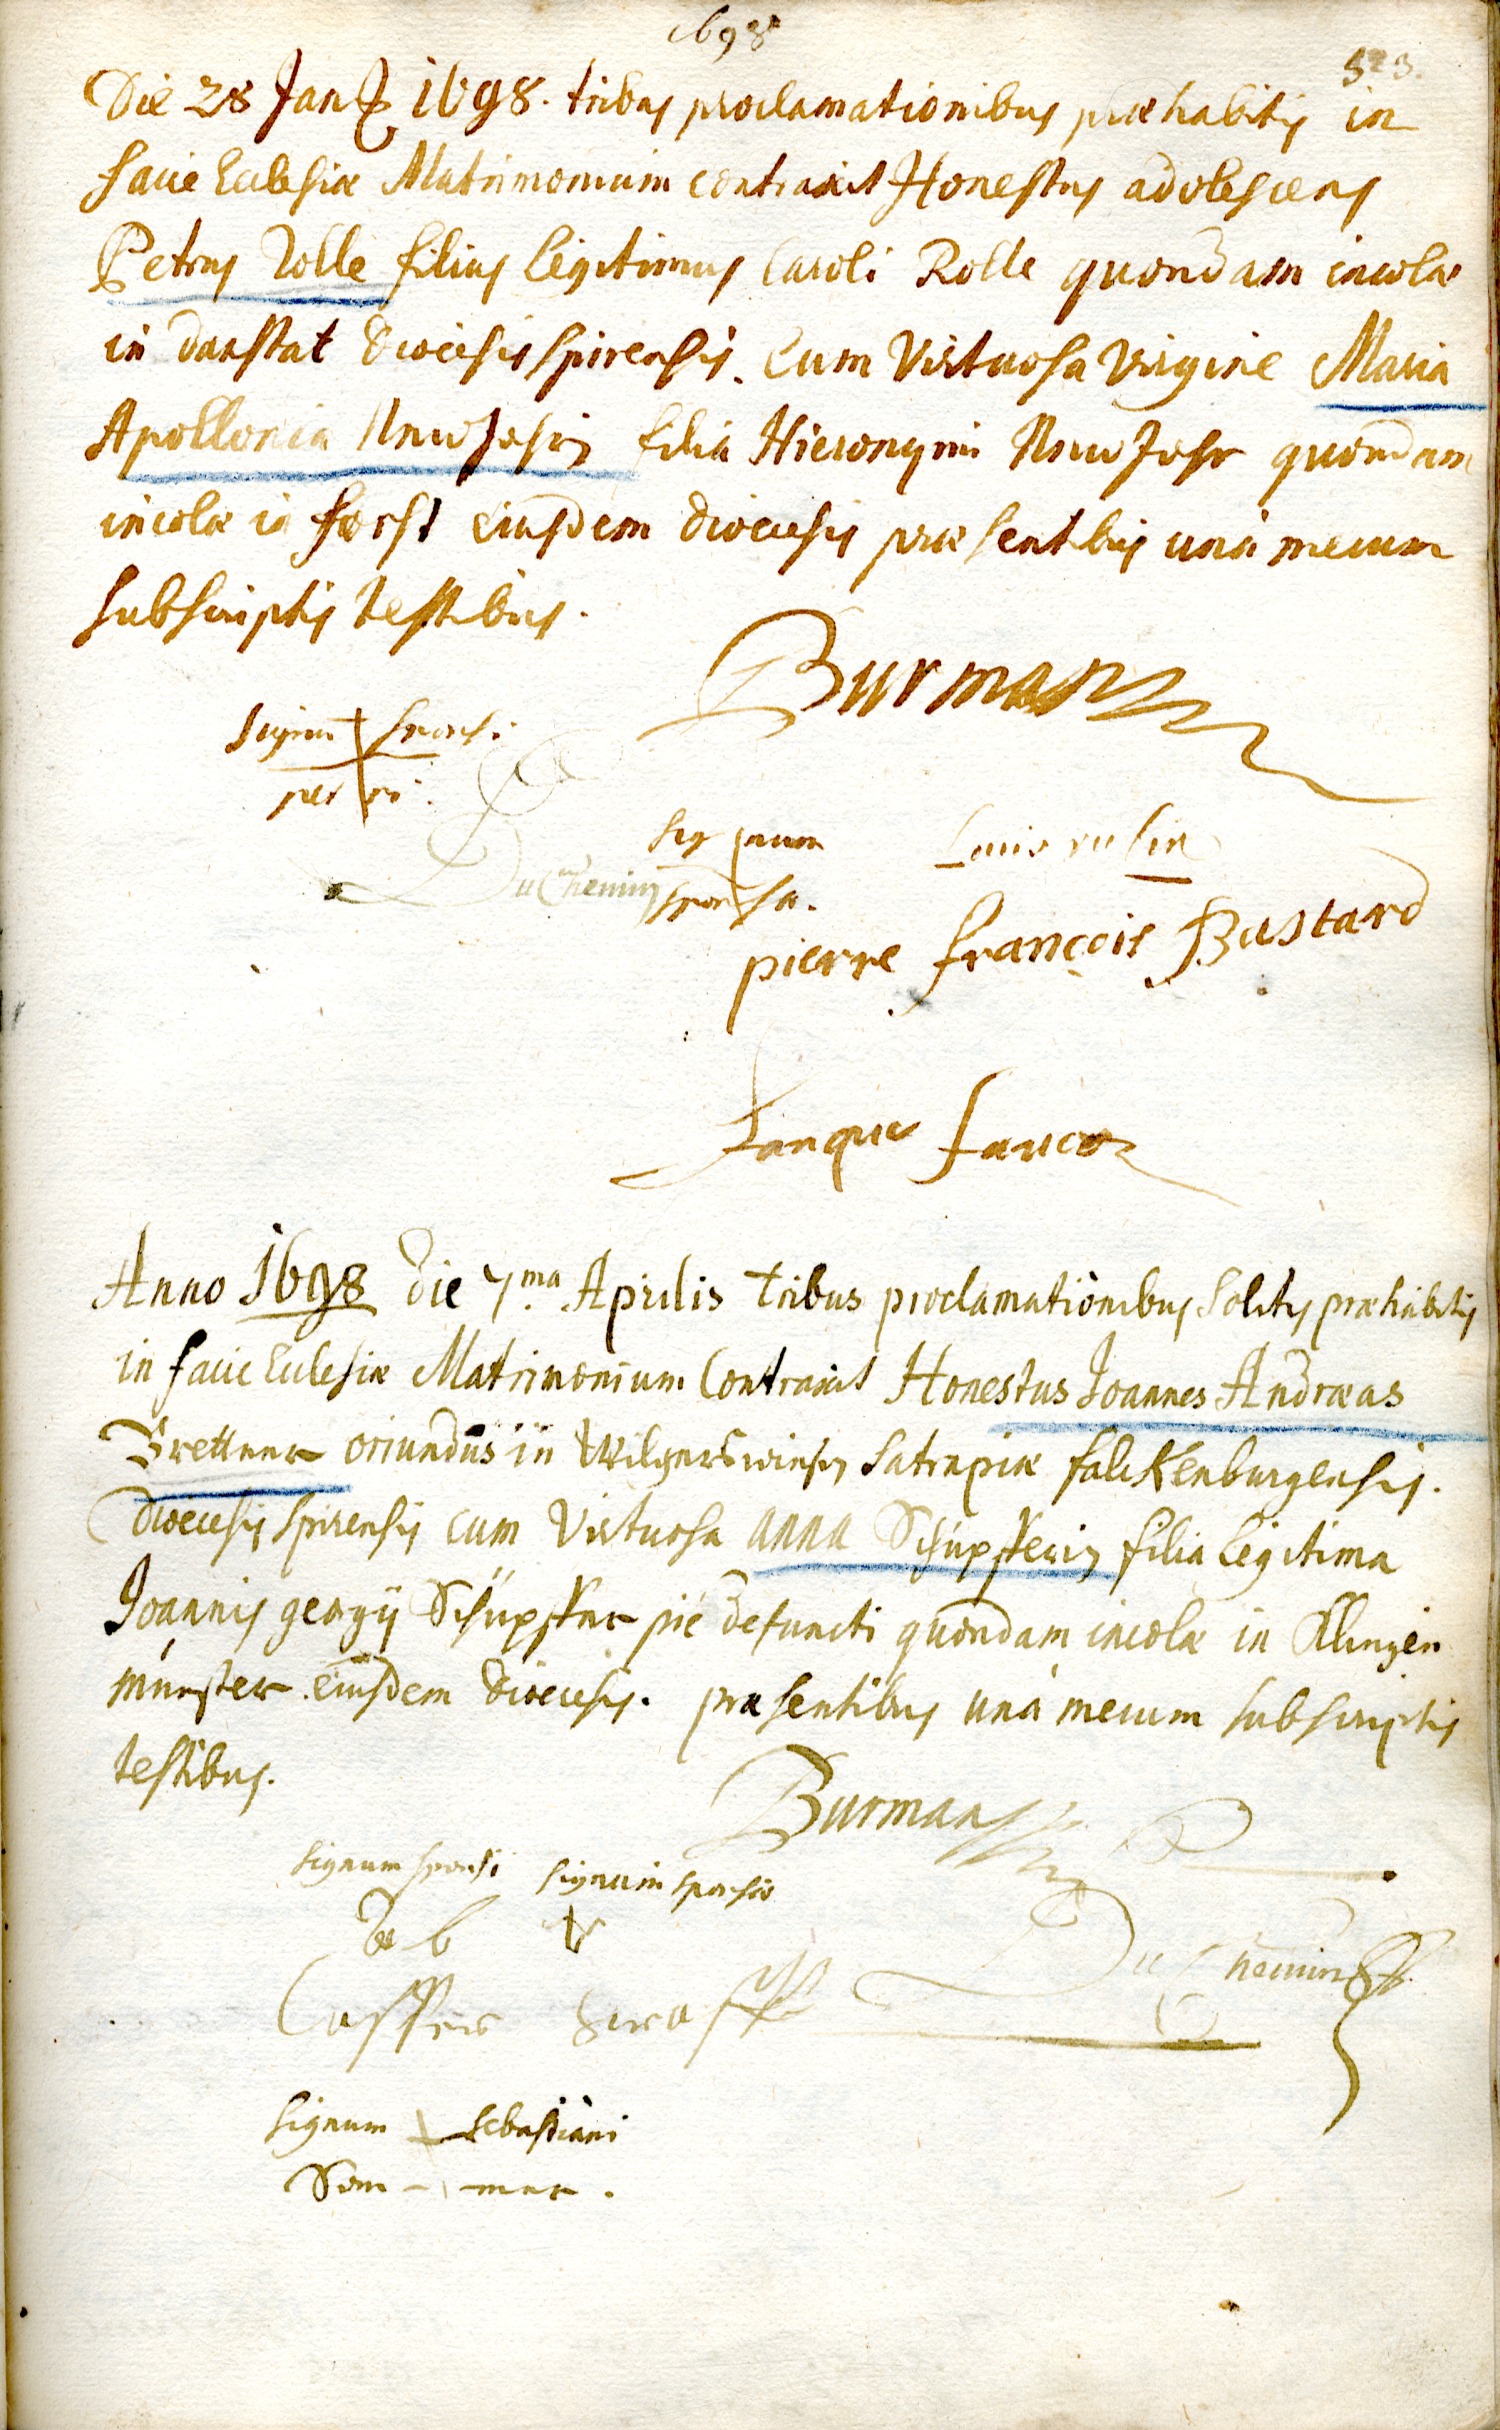 1698
523.
Die 28 Jan 1698. tribus proclamationibus præhabitis in
facie Ecclesiæ Matrimonium contraxit Honestus adolescens
Petrus Rolle filius legitimus Caroli Rolle quondam incolæ
in danstat diœcesis spirensis. Cum Virtuosa Virgine Maria
Apollonia filia Hieronymi quondam
incolæ in forst eiusdem diœcesis præsentibus unà mecum
subscriptis testibus.
Burman
signum sponsi
petri.
Signum
sponsa.
Du Chemin
Louis
pierre françois Bastard
Anno 1698 die 7.ma Aprilis tribus proclamationibus solitis præhabitis
in facie Ecclesiæ Matrimonium Contraxit Honestus Joannes Andræas
Brettner oriundus in Wilgerswiesen Satrapiæ falckenburgensis.
diœcesis spirensis cum Virtuosa anna Schüpfferin filia legitima
Joannis georgii Schüpffer pié defuncti quondam incolæ in Klingen
münster eiusdem diœcesis. præsentibus unà mecum subscriptis
testibus.
Burman
signum sponsi signum sponsæ
Du Chemin
Casper
signum Sebastiani
Som - mer.